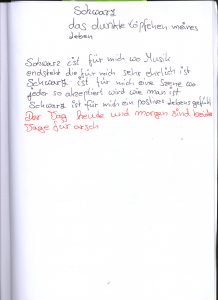 Schwarz
das dunkle töpfchen meines
Leben
Schwarz ist für mich wo Musik
endsteht die für mich sehr ehrlich ist
Schwarz ist für mich eine Szene wo
jeder so akzeptiert wird wie man ist
Schwarz ist für mich ein positives Lebensgefühl
Der Tag heute und morgen sind beide
Tage für arsch